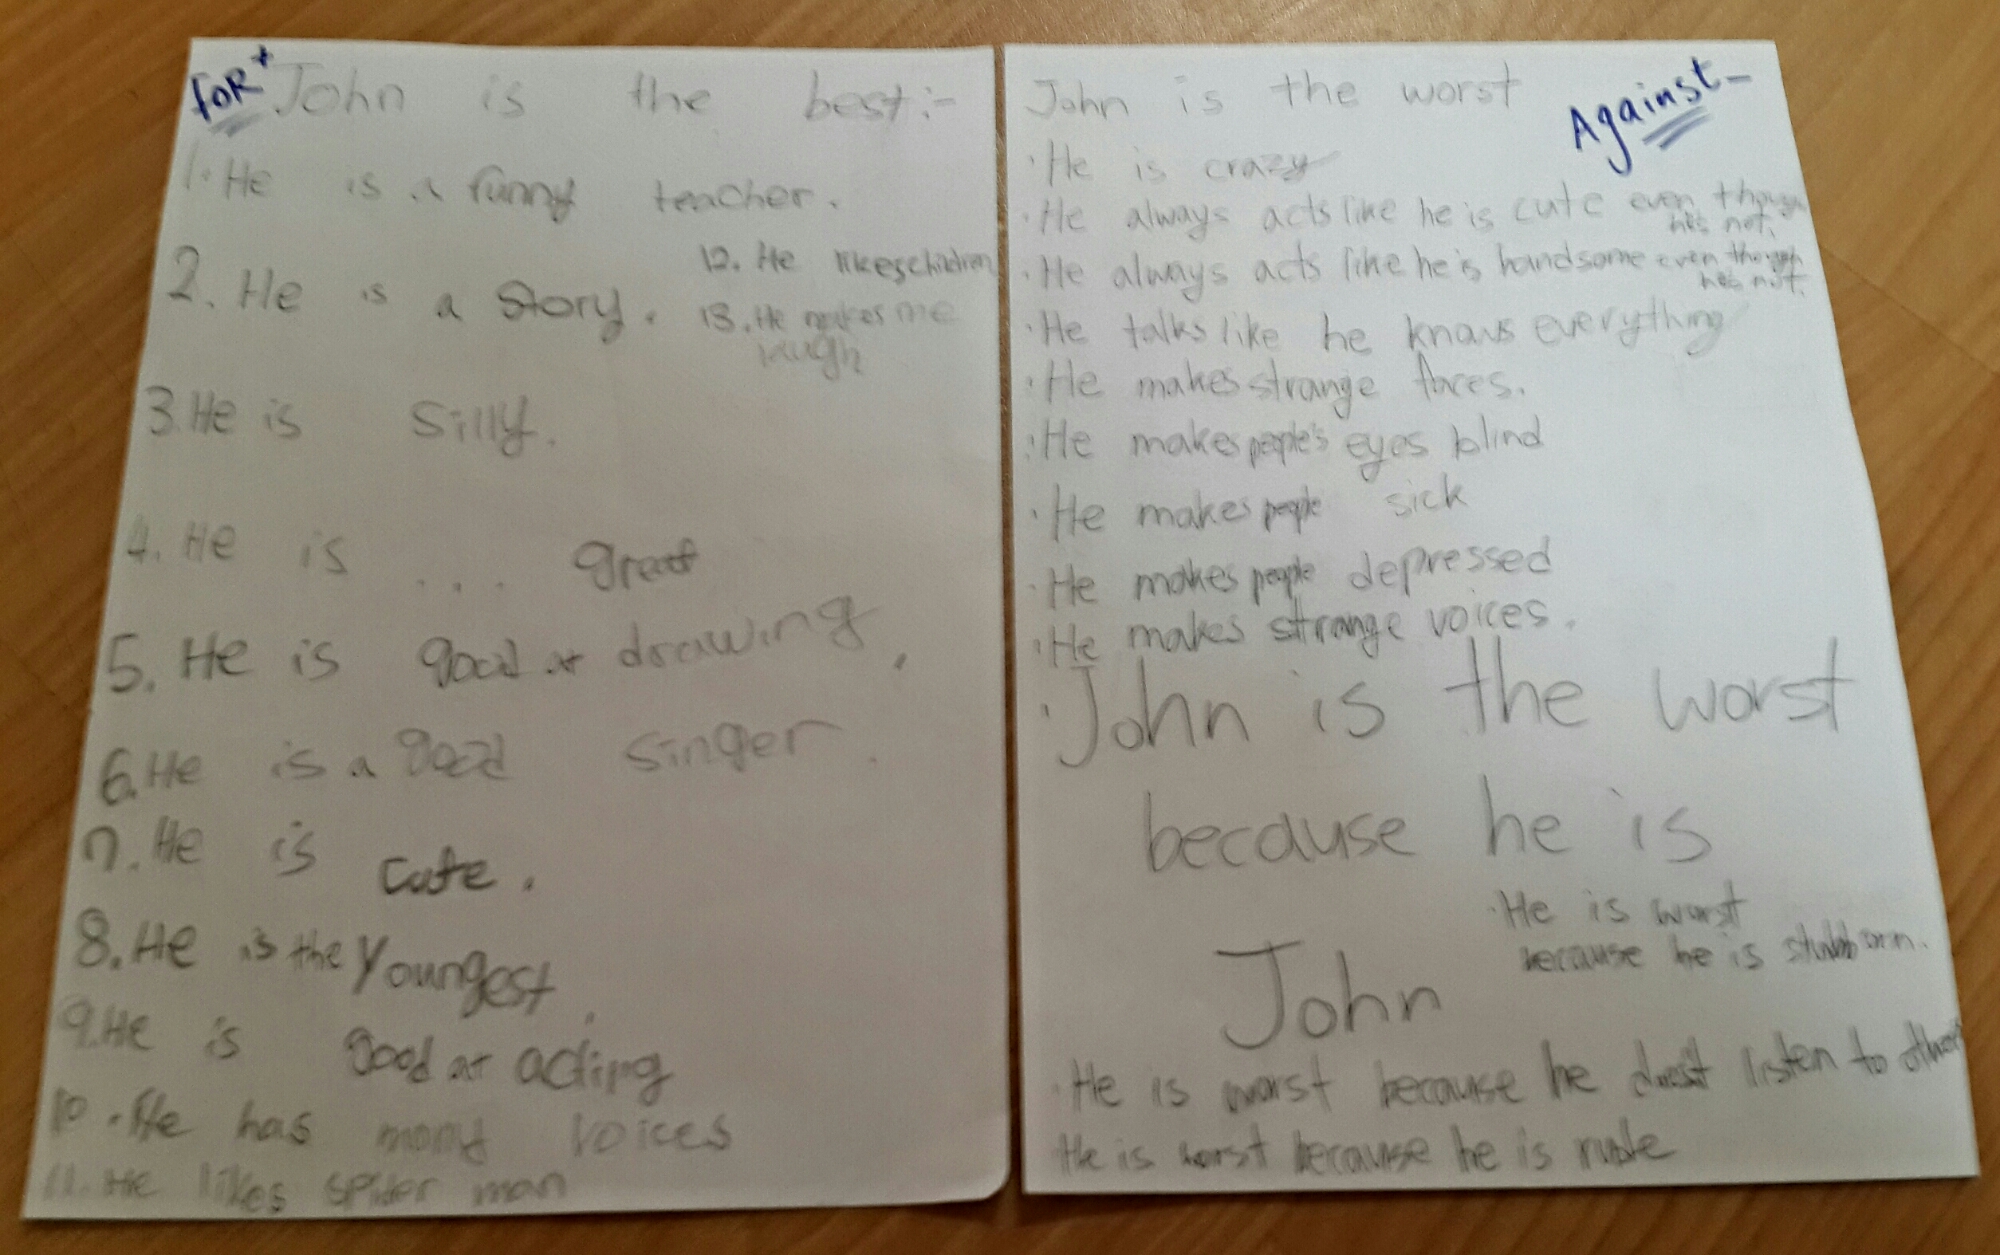 FOR +
John is the best:-
1. He is a funny teacher.
2. He is a story.
3. He is silly.
4. He is ... great
5. He is good at drawing.
6. He is a good singer.
7. He is cute.
8. He is the youngest.
9. He is good at acting
10. He has many voices
11. He likes spider man
12. He likes children
13. He makes me
laugh
Against -
John is the worst
· He is crazy
· He always acts like he is cute even though
he's not.
· He always acts like he is handsome even though
he's not.
· He talks like he knows everything
· He makes strange faces.
· He makes people's eyes blind
· He makes people sick
· He makes people depressed
· He makes strange voices.
· John is the worst
because he is
John
· He is worst
because he is stubborn.
· He is worst because he doesn't listen to other
He is worst because he is rude